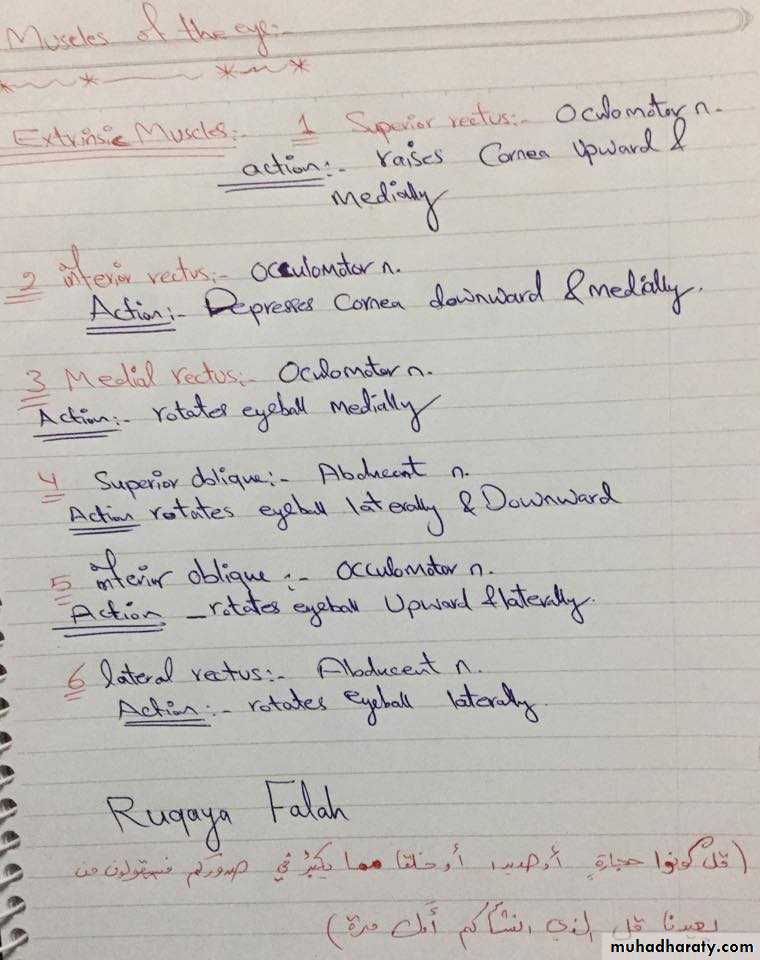 Museles of the eye:-
Extrinsic Muscles:- 1 Superior rectus:- Oculomotor n.
action:- raises Cornea Upward &
Medially
2 inferior rectus:- Occulomotor n.
Action:- Depresses Cornea downward & medially.
3 Medial rectus:- Oculomotor n.
Action:- rotates eyeball Medially
4 Superior oblique:- Abducent n.
Action rotates eyeball laterally & Downward
5 inferior oblique :- Occulomotor n.
Action _rotates eyeball Upward & laterally.
6 lateral rectus:- Abducent n.
Action:- rotates Eyeball laterally.
Ruqaya Falah
(قل كونوا حجارةٍ أو حديد أو خلقا مما يكبُر في صدوركم فسيقولون من
يعيدنا قل الذي انشأكم أول مرة)
muhadharaty.com